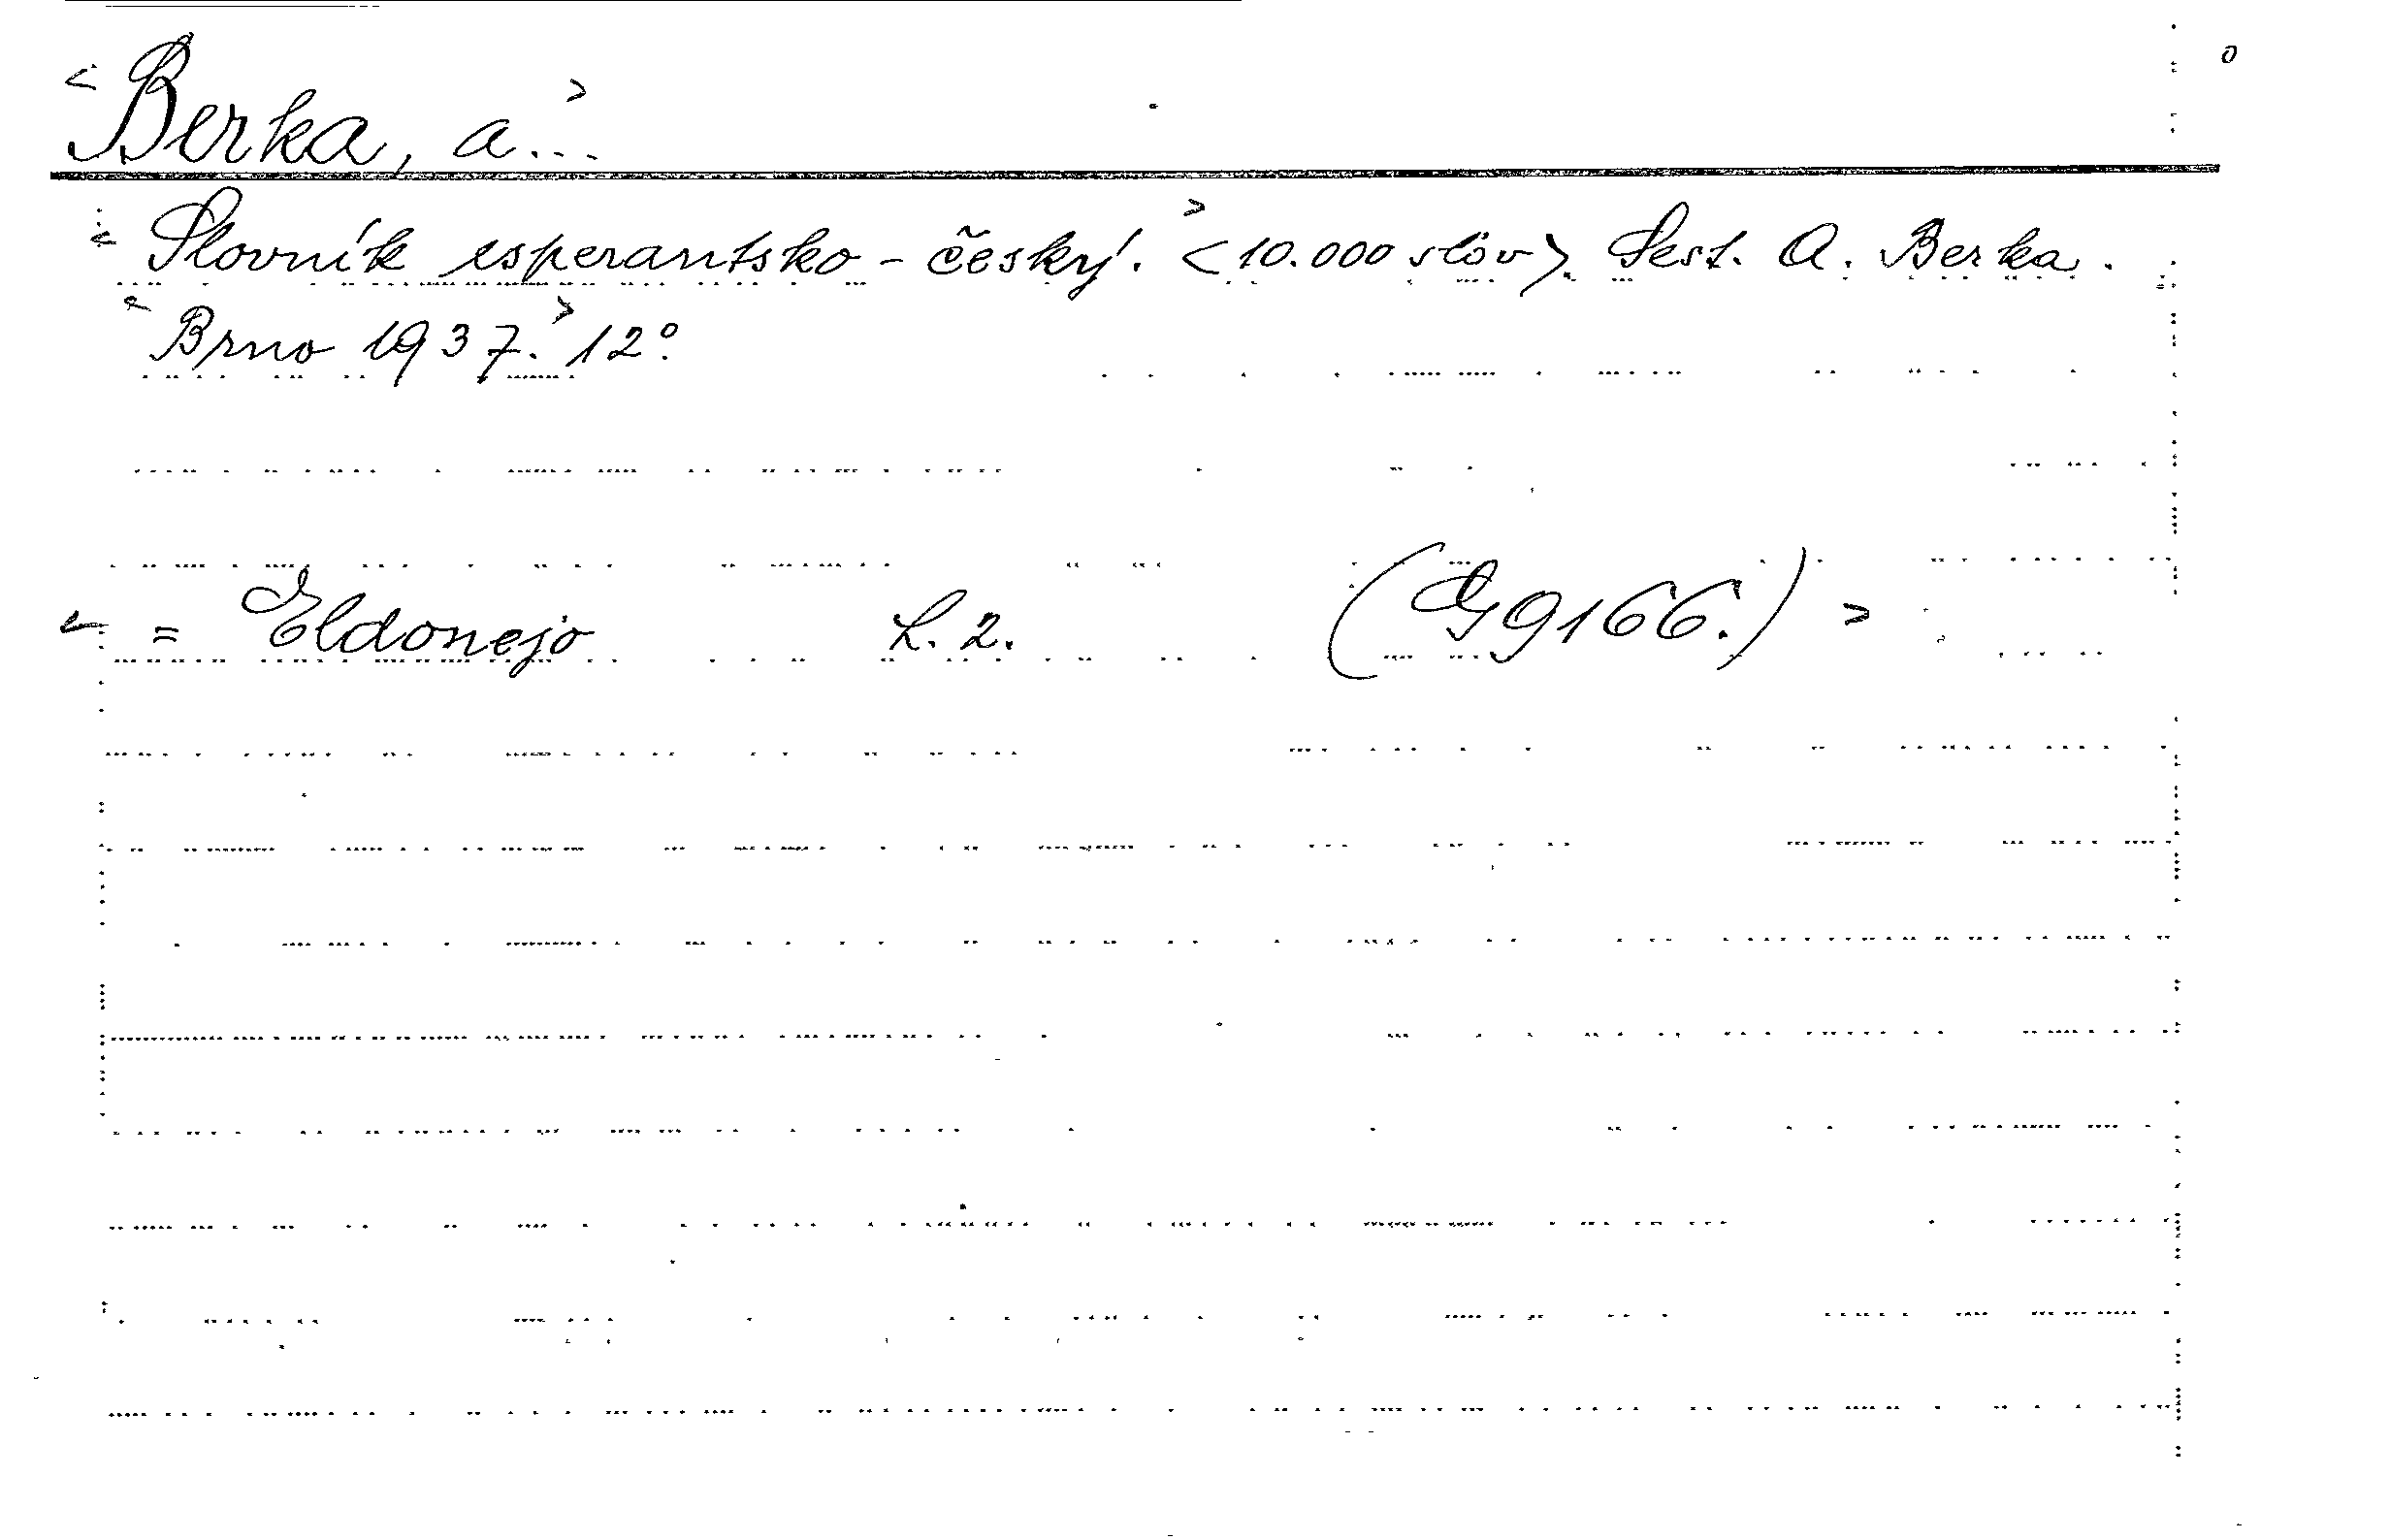 < Berka, A... >
< Slovník esperantsko-český. > <10.000 slov>. Sest. A. Berka.
< Brno 1937. > 12°.
< = Eldonejo L. 2. (G 9166.) >